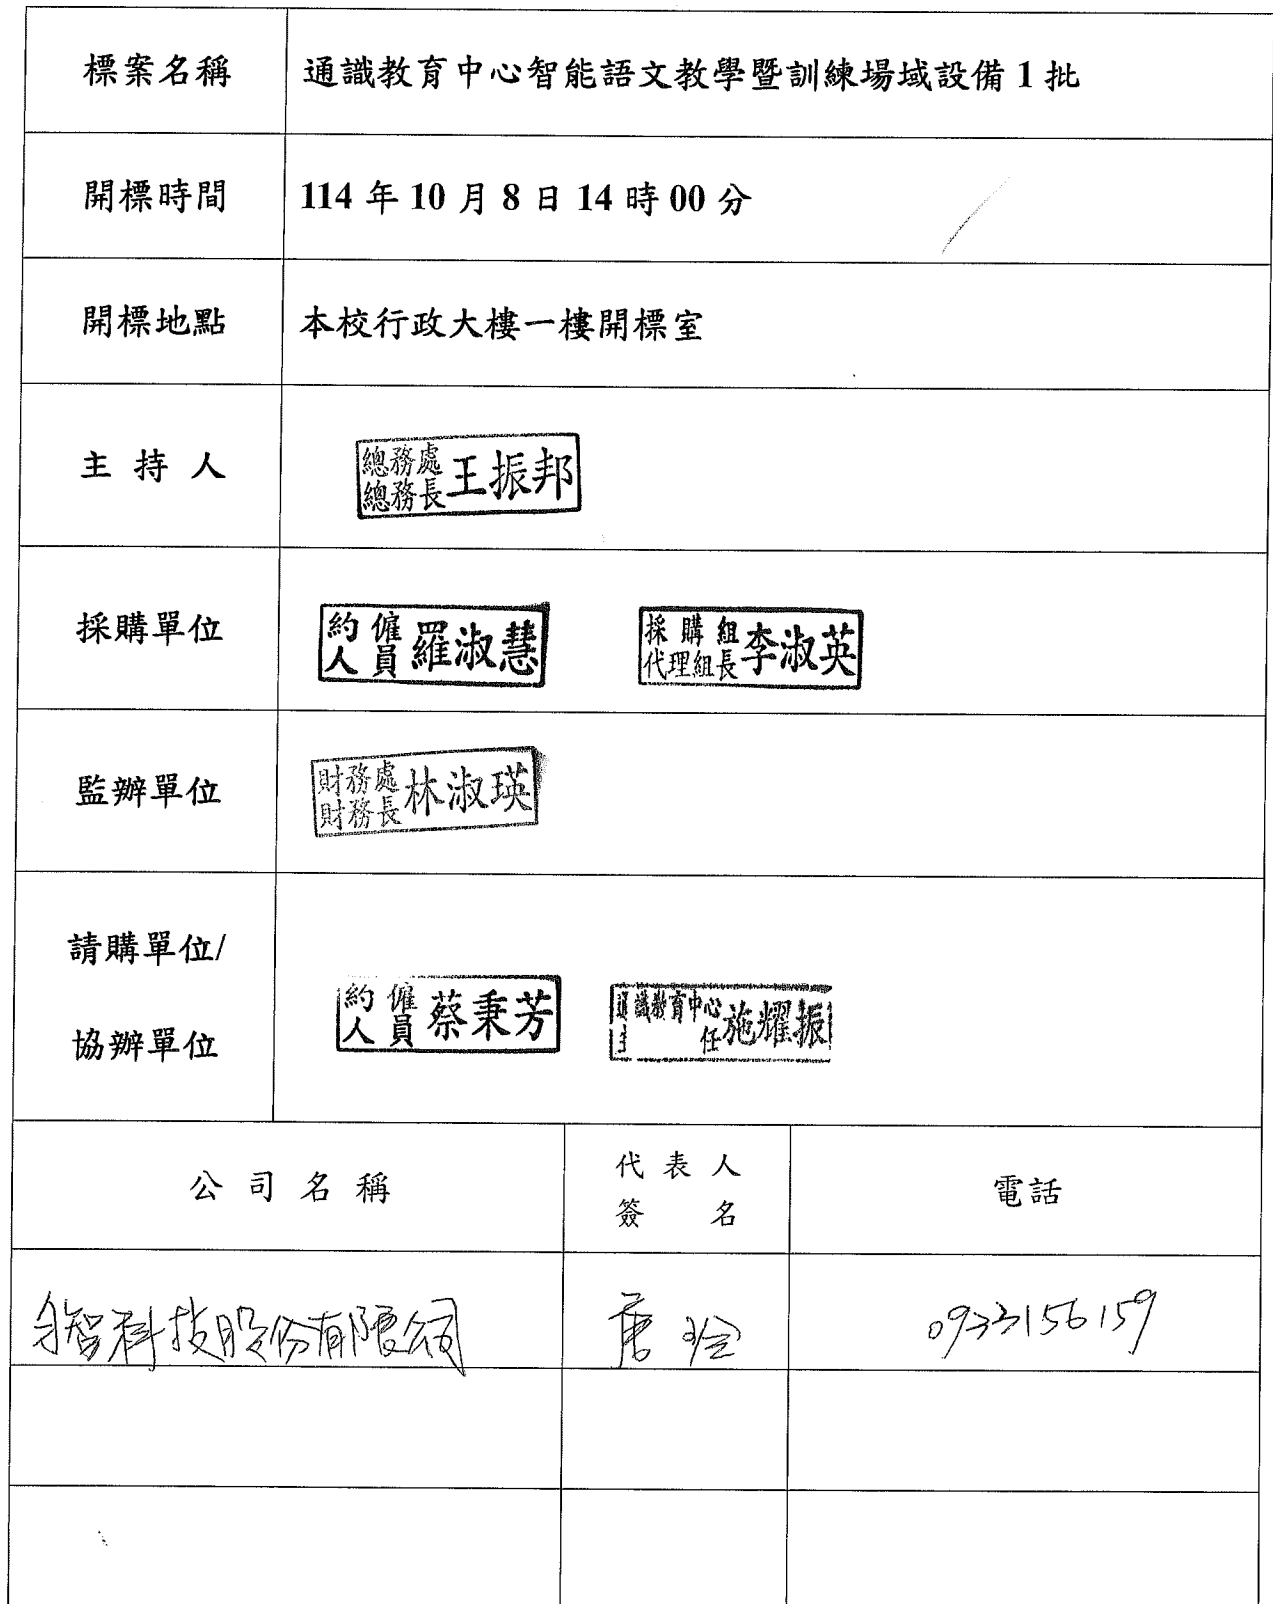 標案名稱 通識教育中心智能語文教學暨訓練場域設備1批
開標時間 114年10月8日14時00分
開標地點 本校行政大樓一樓開標室
主持人 總務處總務長 王振邦
採購單位 約僱人員 羅淑慧 採購組代理組長 李淑英
監辦單位 財務處財務長 林淑瑛
請購單位/
協辦單位 約僱人員 蔡秉芳 通識教育中心主任 施耀振
公司名稱 代表人簽名 電話
智科技股份有限公司 唐 0933156159